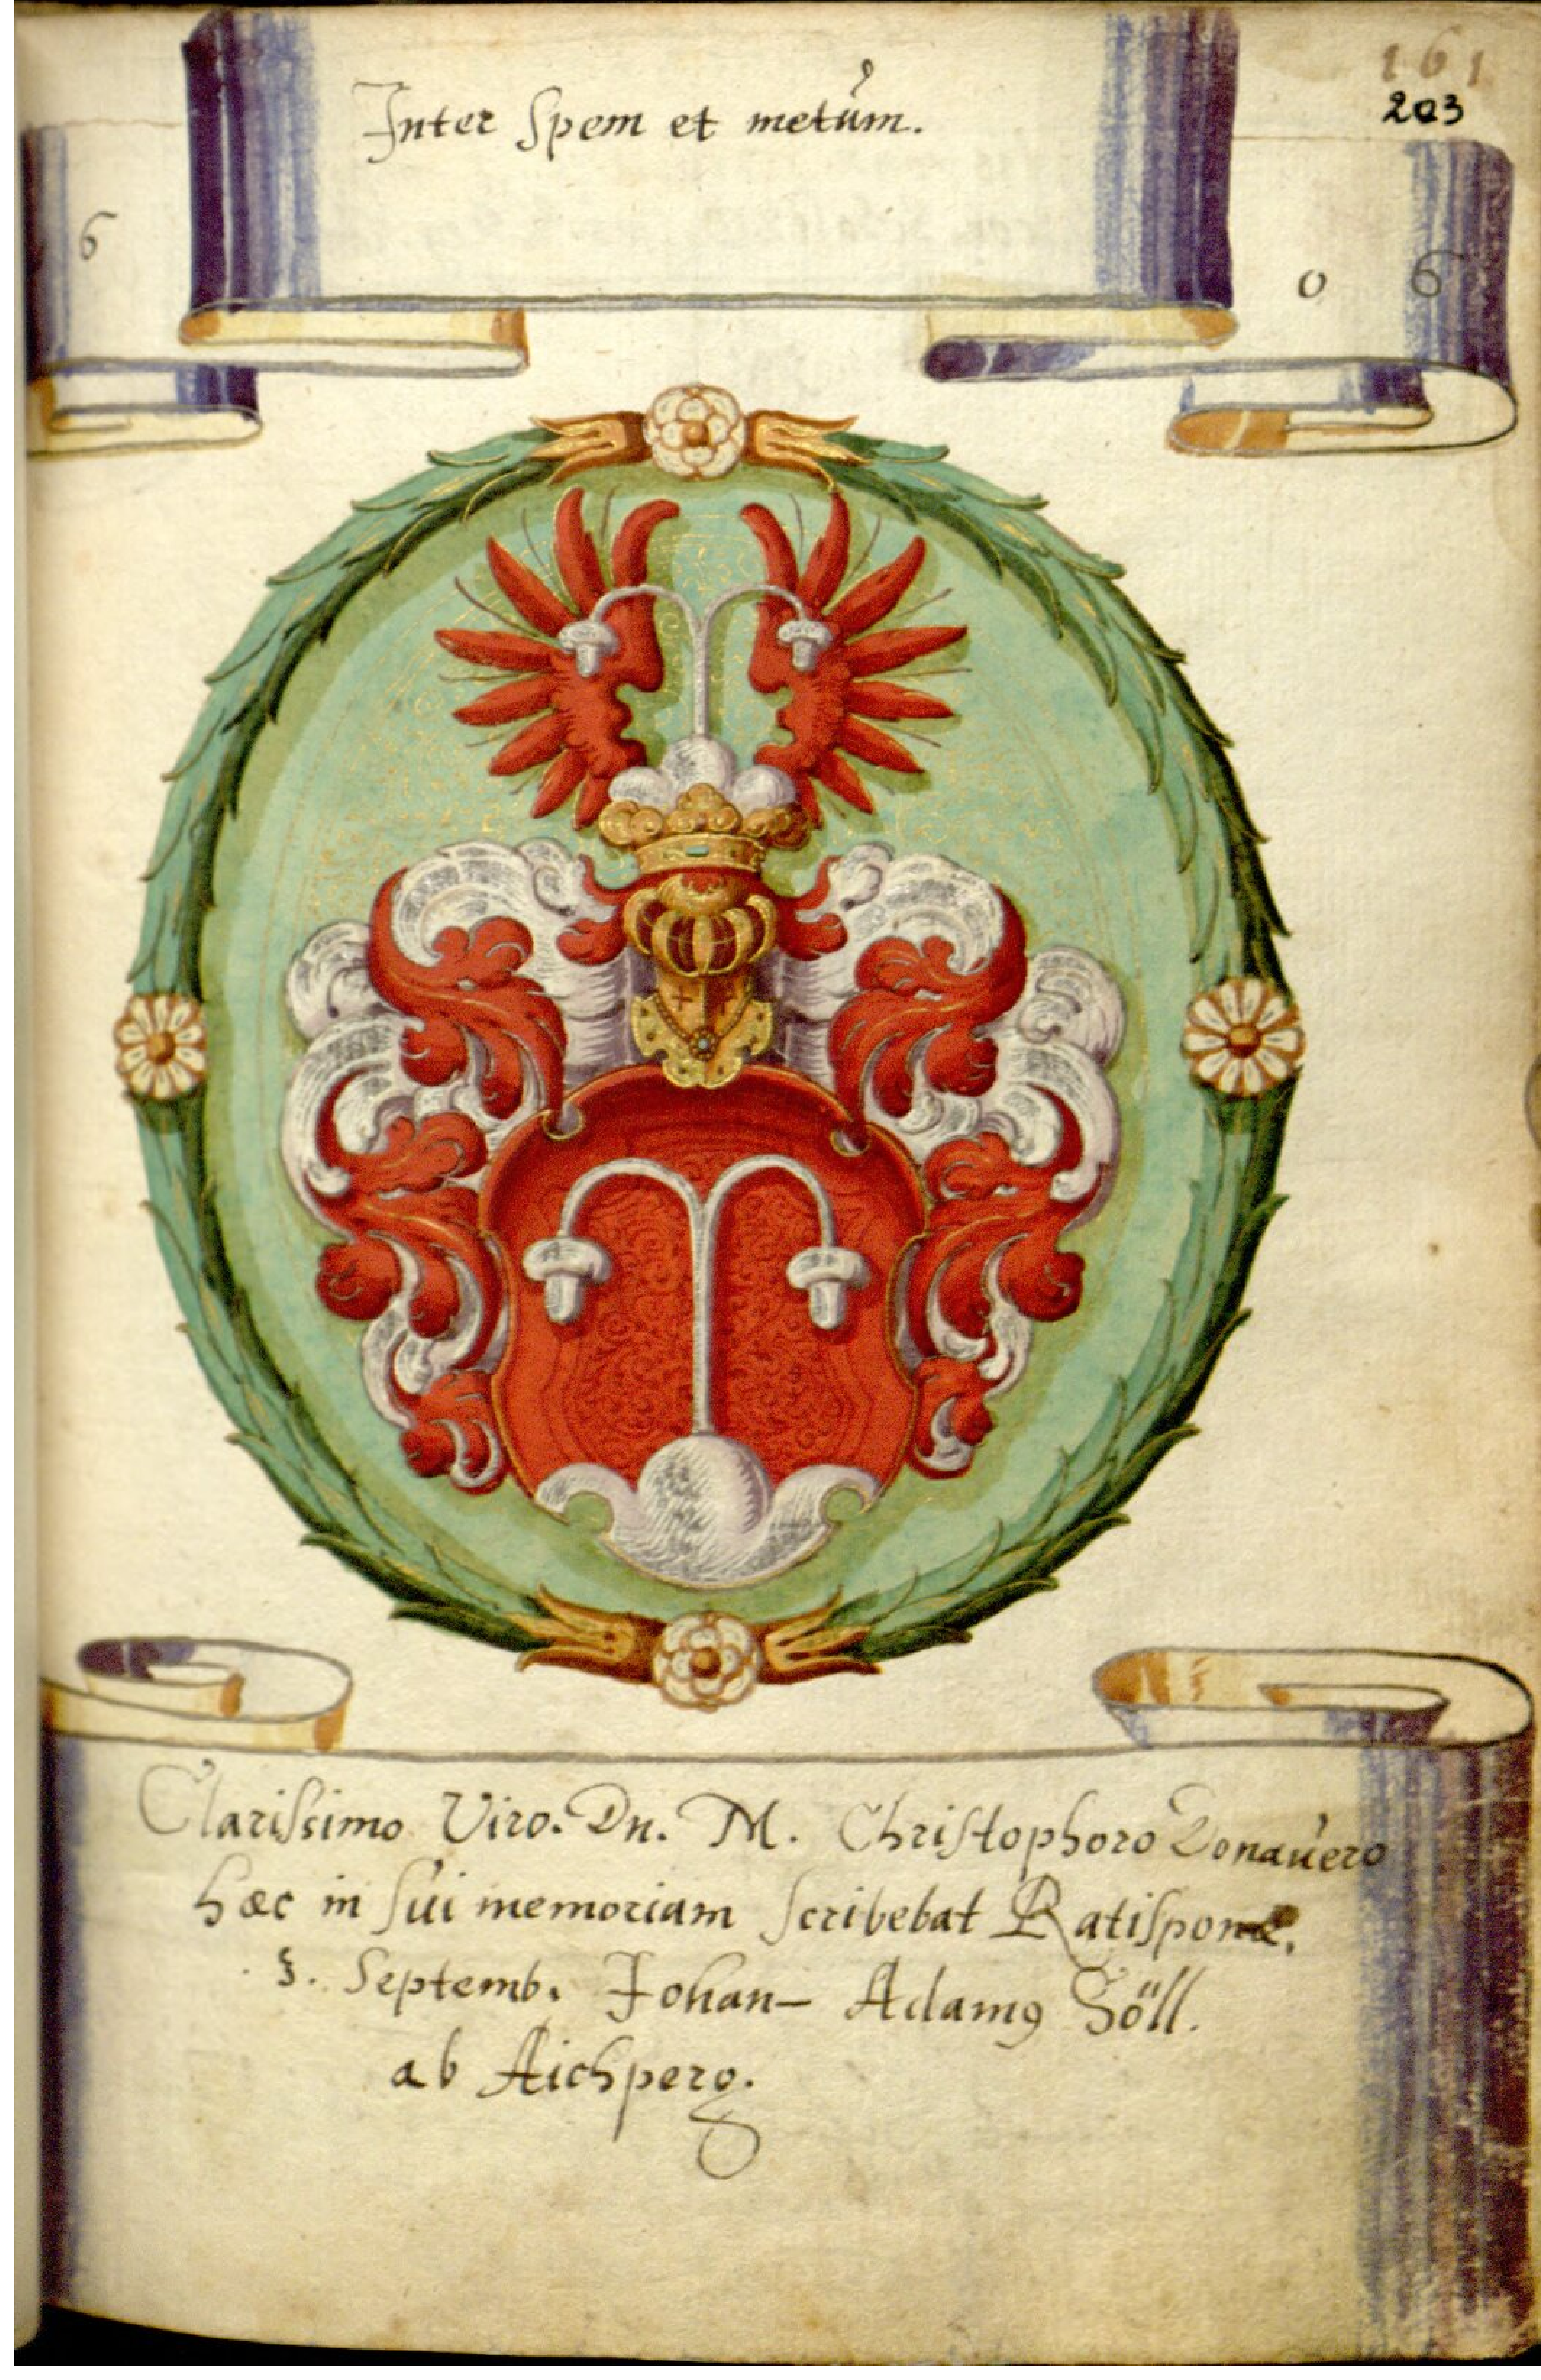 161
203
Inter spem et metum.
6
0 6
Clarissimo Viro. Dn. M. Christophoro Donauero
hæc in sui memoriam scribebat Ratisponæ.
Septemb. Johan– Adamꝯ Söll.
ab Aichperg.